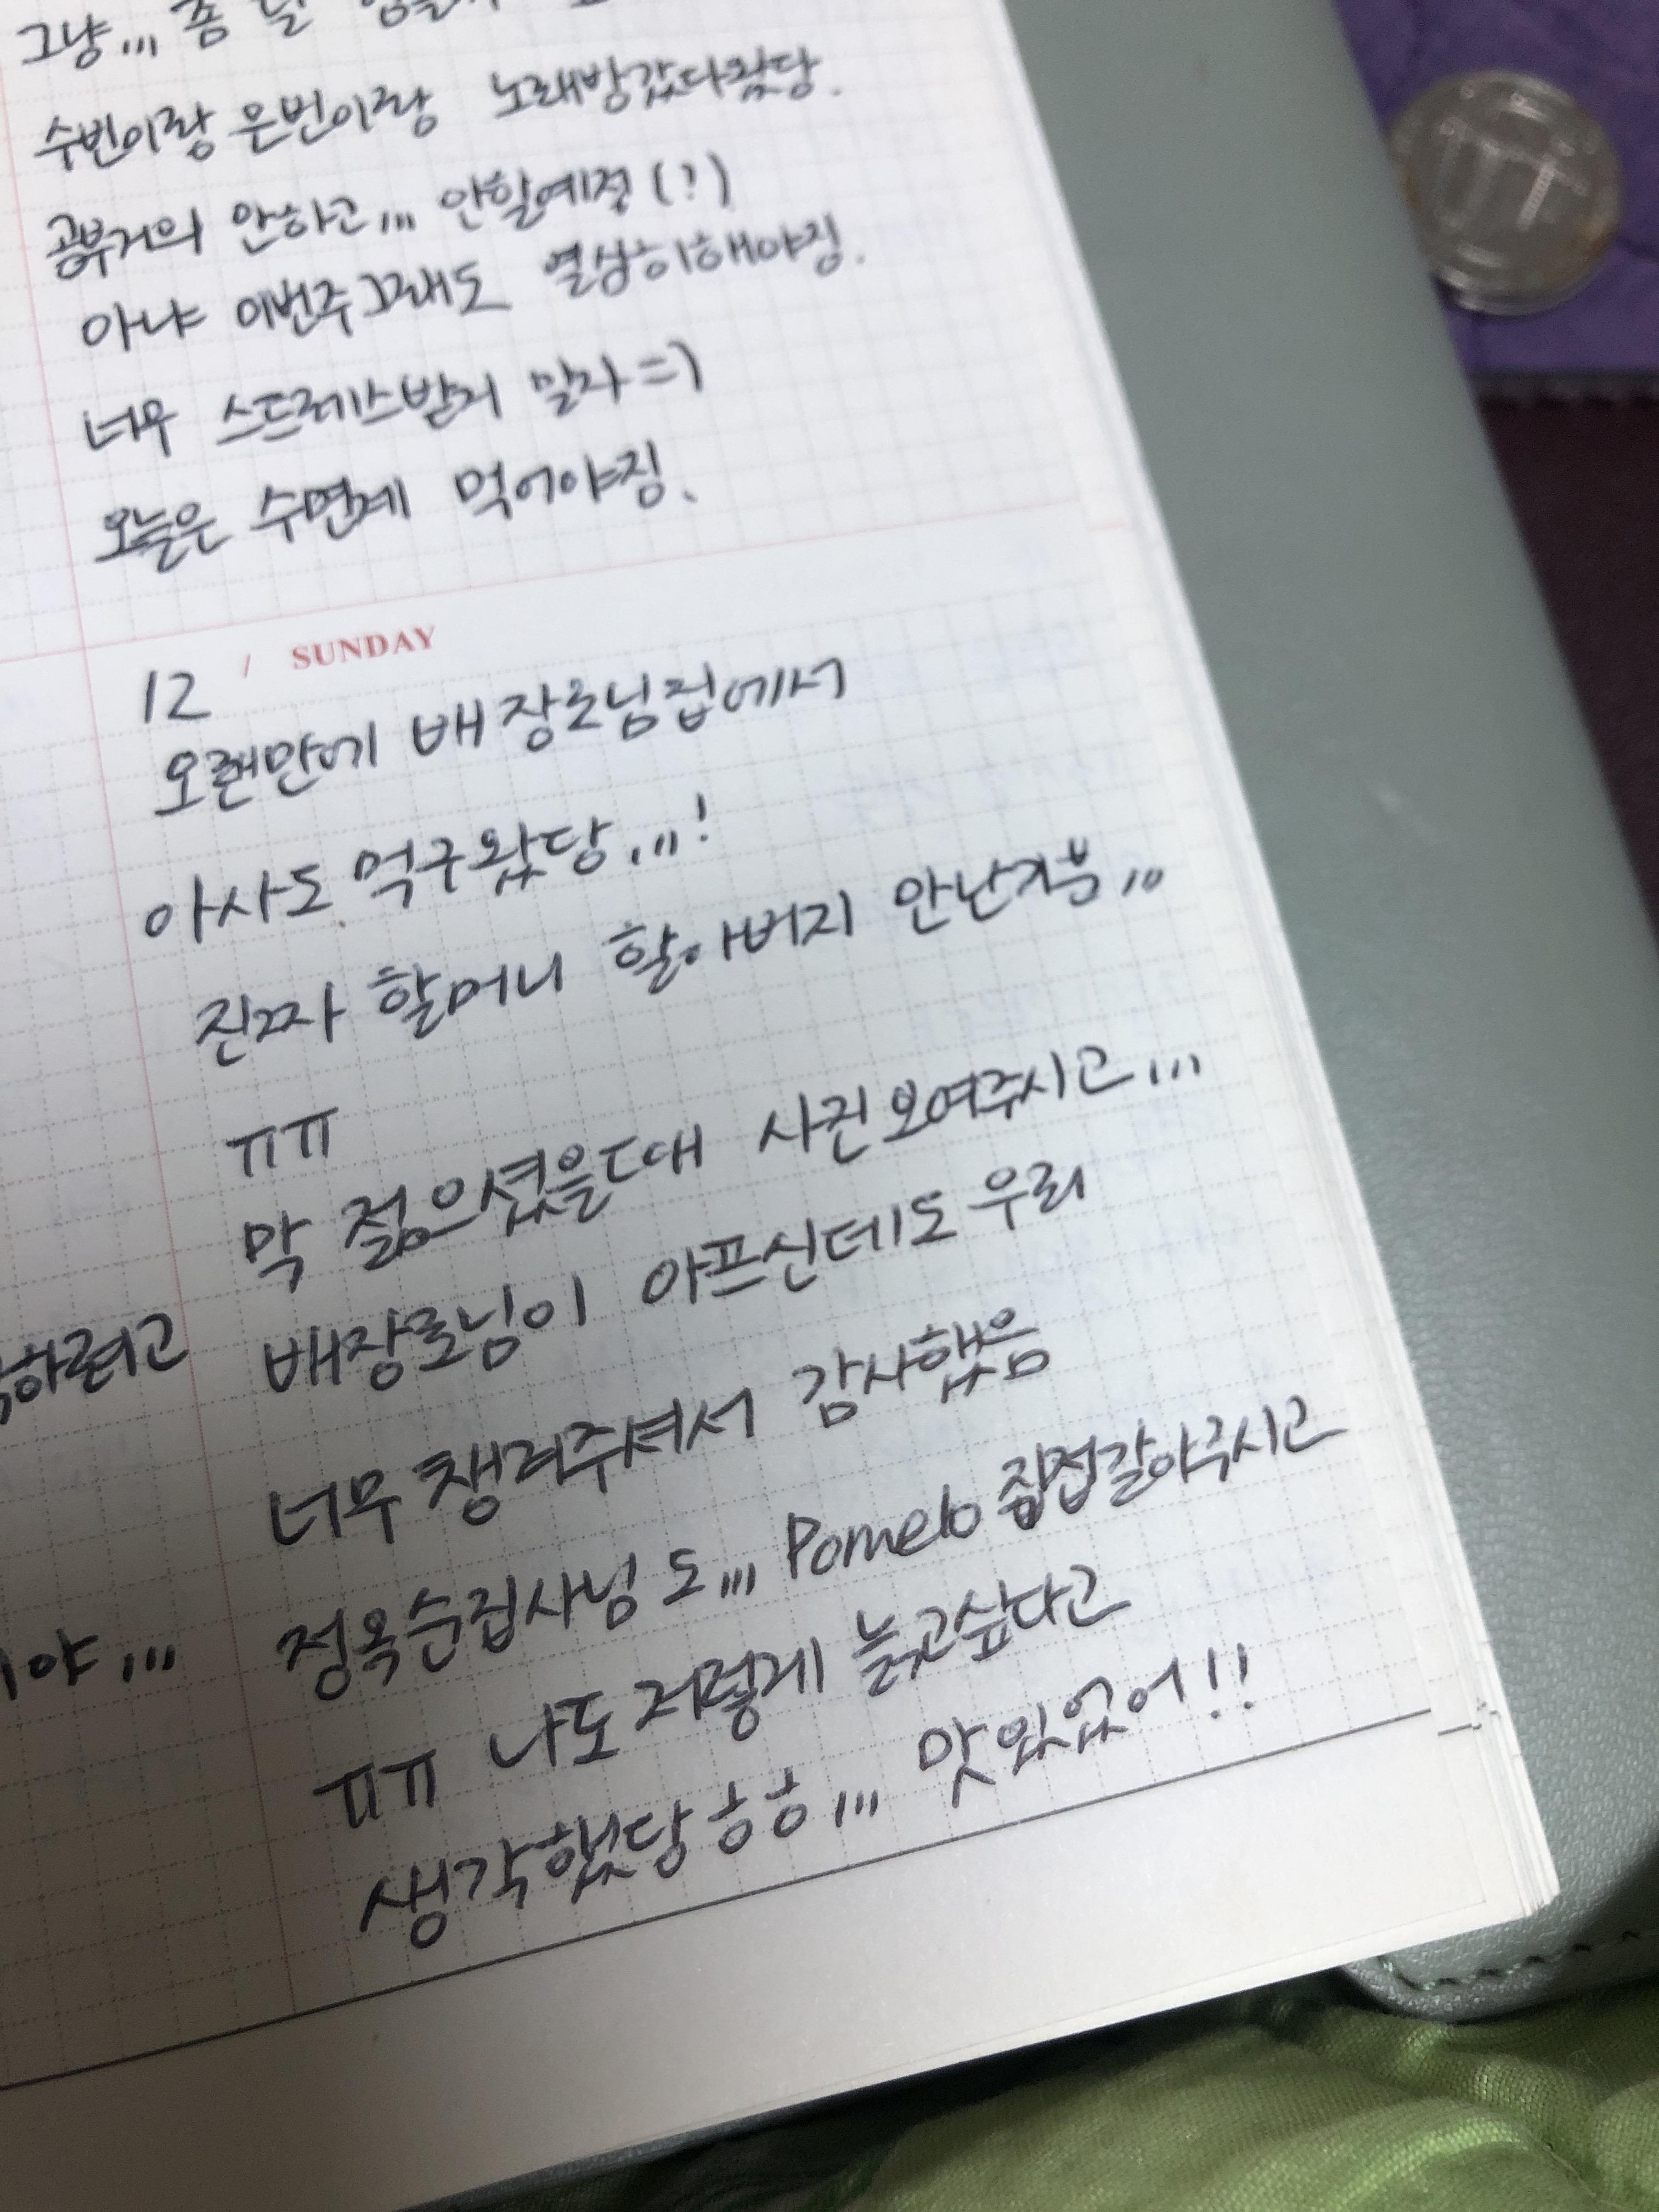 그냥,,, 좀
수빈이랑 은빈이랑 노래방갔다왔당.
공부거의 안하고,,, 안할예정(?)
아냐 이번주그래도 열심히해야징.
너무 스트레스받지 말자=)
오늘은 수면제 먹어야징.
12 / SUNDAY
오랜만에 배장로님집에서
아사도 먹구왔당,,,!
진짜 할머니 할아버지 안난지분,,,
ㅠㅠ
막 젊으셨을대 사진보여주시고,,,
배장로님이 아프신데도 우리
너무 챙겨주셔서 감사했음
정옥순집사님도,,, Pomelo 직접갈아주시고
ㅠㅠ 나도저렇게 늙고싶다고
생각했당ㅎㅎ,,, 맛있었어!!
하려고
야,,,